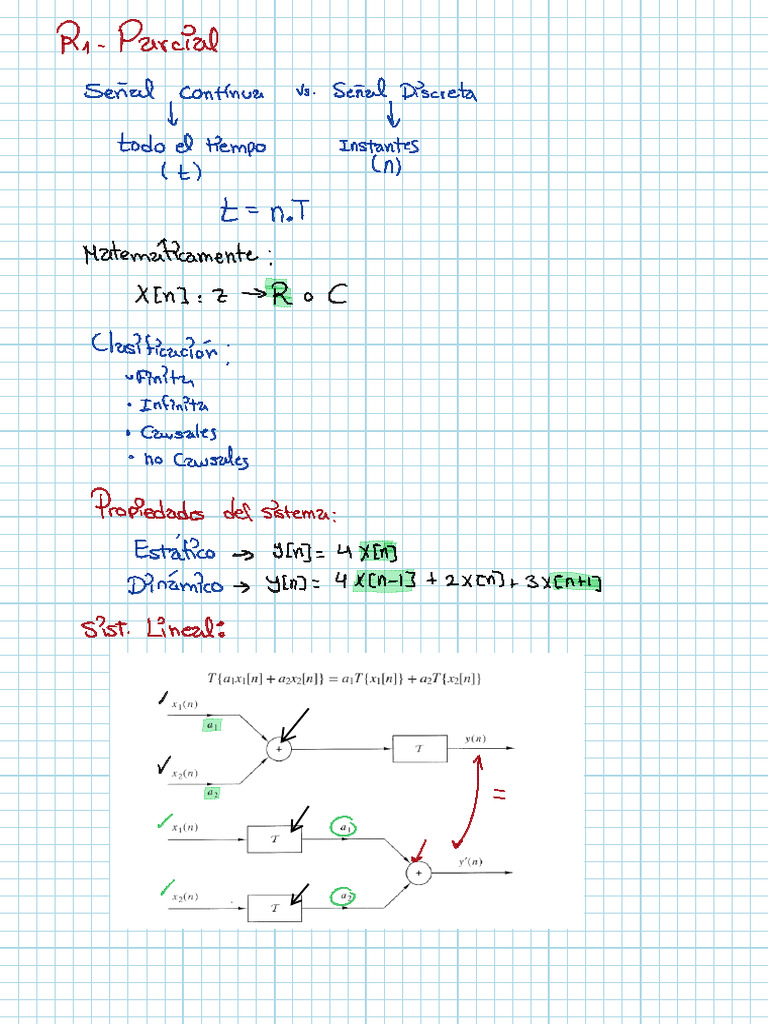 R1 - Parcial
Señal Contínua vs. Señal Discreta
todo el tiempo Instantes
(t) (n)
t = n.T
Matemáticamente:
X[n] : Z → R o C
Clasificación:
- Finita
• Infinita
• Causales
• no Causales
Propiedades del sistema:
Estático → y[n] = 4 x[n]
Dinámico → y[n] = 4 x[n-1] + 2x[n] + 3x[n+1]
Sist. Lineal:
T{a₁x₁[n] + a₂x₂[n]} = a₁T{x₁[n]} + a₂T{x₂[n]}
x₁(n)
a₁
+ T y(n)
x₂(n)
a₂
=
x₁(n) T a₁
+ y'(n)
x₂(n) T a₂